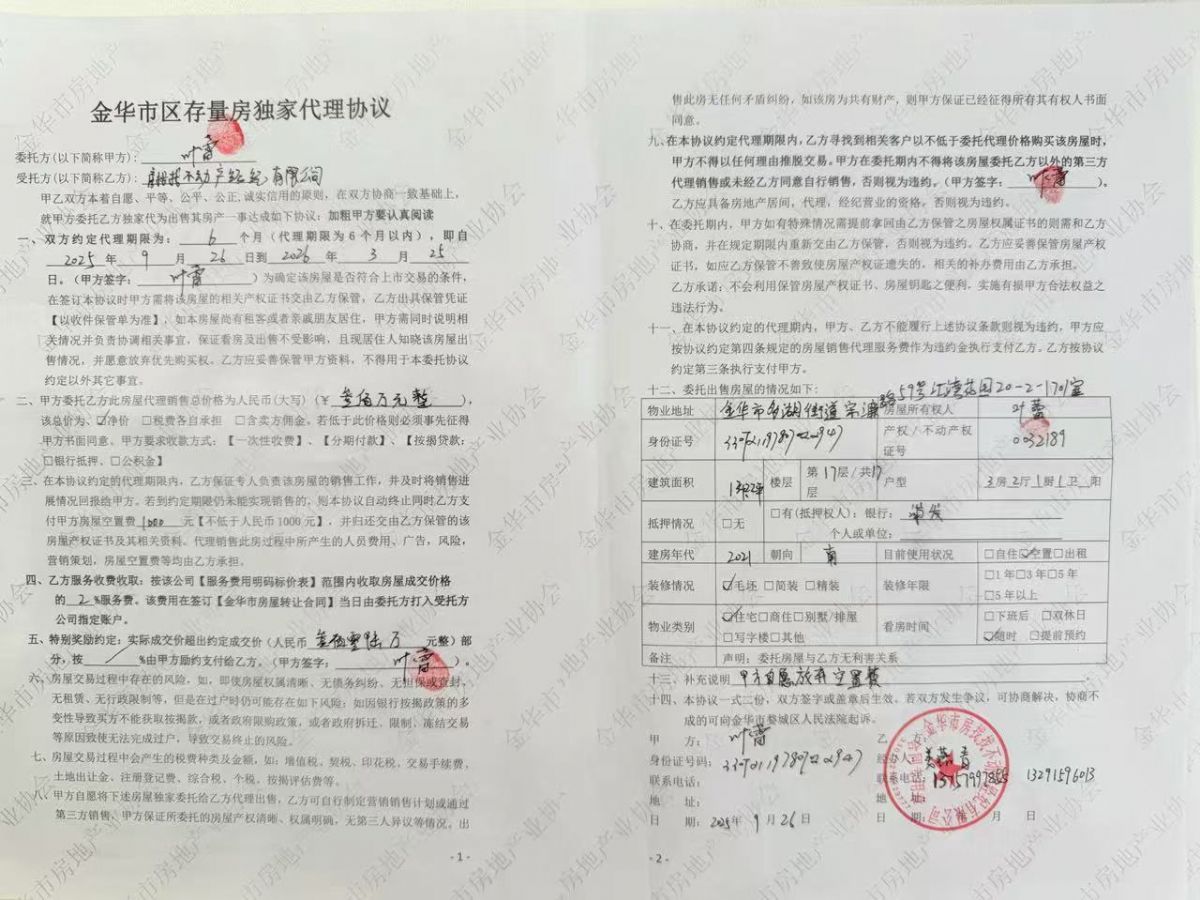 金华市区存量房独家代理协议
委托方(以下简称甲方): 叶蕾
受托方(以下简称乙方): 不动产经纪有限公司
甲乙双方本着自愿、平等、公平、公正,诚实信用的原则,在双方协商一致基础上,
就甲方委托乙方独家代为出售其房产一事达成如下协议:加粗甲方要认真阅读
一、双方约定代理期限为: 6 个月(代理期限为6个月以内),即自
2025 年 9 月 26 日到 2026 年 3 月 25
日。(甲方签字: 叶蕾 )为确定该房屋是否符合上市交易的条件,
在签订本协议时甲方需将该房屋的相关产权证书交由乙方保管,乙方出具保管凭证
【以收件保管单为准】,如本房屋尚有租客或者亲戚朋友居住,甲方需同时说明相
关情况并负责协调相关事宜,保证看房及出售不受影响,且现居住人知晓该房屋出
售情况,并愿意放弃优先购买权。乙方应妥善保管甲方资料,不得用于本委托协议
约定以外其它事宜。
二、甲方委托乙方此房屋代理销售总价格为人民币(大写)(¥ 叁佰万元整 ),
该总价为:☑净价 □税费各自承担 □含卖方佣金。若低于此价格则必须事先征得
甲方书面同意。甲方要求收款方式:【一次性收费】、【分期付款】、【按揭贷款:
□银行抵押、□公积金】
三、在本协议约定的代理期限内,乙方保证专人负责该房屋的销售工作,并及时将销售进
展情况回报给甲方。若到约定期限仍未能实现销售的,则本协议自动终止同时乙方支
付甲方房屋空置费 1000 元【不低于人民币1000元】,并归还交由乙方保管的该
房屋产权证书及其相关资料。代理销售此房过程中所产生的人员费用、广告,风险,
营销策划,房屋空置费等均由乙方承担。
四、乙方服务收费收取:按该公司【服务费用明码标价表】范围内收取房屋成交价格
的 2 %服务费。该费用在签订【金华市房屋转让合同】当日由委托方打入受托方
公司指定账户。
五、特别奖励约定:实际成交价超出约定成交价(人民币 叁佰零陆万 元整)部
分,按 / %由甲方励约支付给乙方。(甲方签字: 叶蕾 )。
六、房屋交易过程中存在的风险,如,即使房屋权属清晰、无债务纠纷、无担保或查封,
无租赁、无行政限制等,但是在过户时仍可能存在如下风险:如因银行按揭政策的多
变性导致买方不能获取按揭款,或者政府限购政策,或者政府拆迁、限制、冻结交易
等原因致使无法完成过户,导致交易终止的风险。
七、房屋交易过程中会产生的税费种类及金额,如:增值税、契税、印花税、交易手续费、
土地出让金、注册登记费、综合税、个税、按揭评估费等。
八、甲方自愿将下述房屋独家委托给乙方代理出售,乙方可自行制定营销销售计划或通过
第三方销售、甲方保证所委托的房屋产权清晰、权属明确,无第三人异议等情况。出
- 1 -
售此房无任何矛盾纠纷,如该房为共有财产,则甲方保证已经征得所有其有权人书面
同意。
九、在本协议约定代理期限内,乙方寻找到相关客户以不低于委托代理价格购买该房屋时,
甲方不得以任何理由推脱交易。甲方在委托期内不得将该房屋委托乙方以外的第三方
代理销售或未经乙方同意自行销售,否则视为违约。(甲方签字: 叶蕾 )。
乙方应具备房地产居间,代理,经纪营业的资格,否则视为违约。
十、在委托期内,甲方如有特殊情况需提前拿回由乙方保管之房屋权属证书的则需和乙方
协商,并在规定期限内重新交由乙方保管,否则视为违约。乙方应妥善保管房屋产权
证书,如应乙方保管不善致使房屋产权证遗失的,相关的补办费用由乙方承担。
乙方承诺:不会利用保管房屋产权证书、房屋钥匙之便利,实施有损甲方合法权益之
违法行为。
十一、在本协议约定的代理期内,甲方、乙方不能履行上述协议条款则视为违约,甲方应
按协议约定第四条规定的房屋销售代理服务费作为违约金执行支付乙方。乙方按协议
约定第三条执行支付甲方。
十二、委托出售房屋的情况如下:
物业地址 金华市多湖街道宗濂路59号江湾花园20-2-1701室 房屋所有权人 叶蕾
身份证号 产权/不动产权证号 0032189
建筑面积 楼层 第17层/共17层 户型 3房2厅1厨1卫 阳
抵押情况 □无 □有(抵押权人):银行:
个人或单位:
建房年代 2021 朝向 南 目前使用状况 □自住☑空置□出租
装修情况 ☑毛坯 □简装 □精装 装修年限 □1年□3年□5年
□5年以上
物业类别 ☑住宅□商住□别墅/排屋 看房时间 □下班后 □双休日
□写字楼□其他 ☑随时 □提前预约
备注 声明:委托房屋与乙方无利害关系
十三、补充说明 甲方自愿放弃空置费
十四、本协议一式二份,双方签字或盖章后生效。若双方发生争议,可协商解决,协商不
成的可向金华市婺城区人民法院起诉。
甲 方: 叶蕾 乙 方:
身份证号码: 经办人:
联系电话: 联系电话: 13757997855 13291596013
地 址: 地 址:
日 期: 2025年 9 月 26 日 日 期: 年 月 日
- 2 -